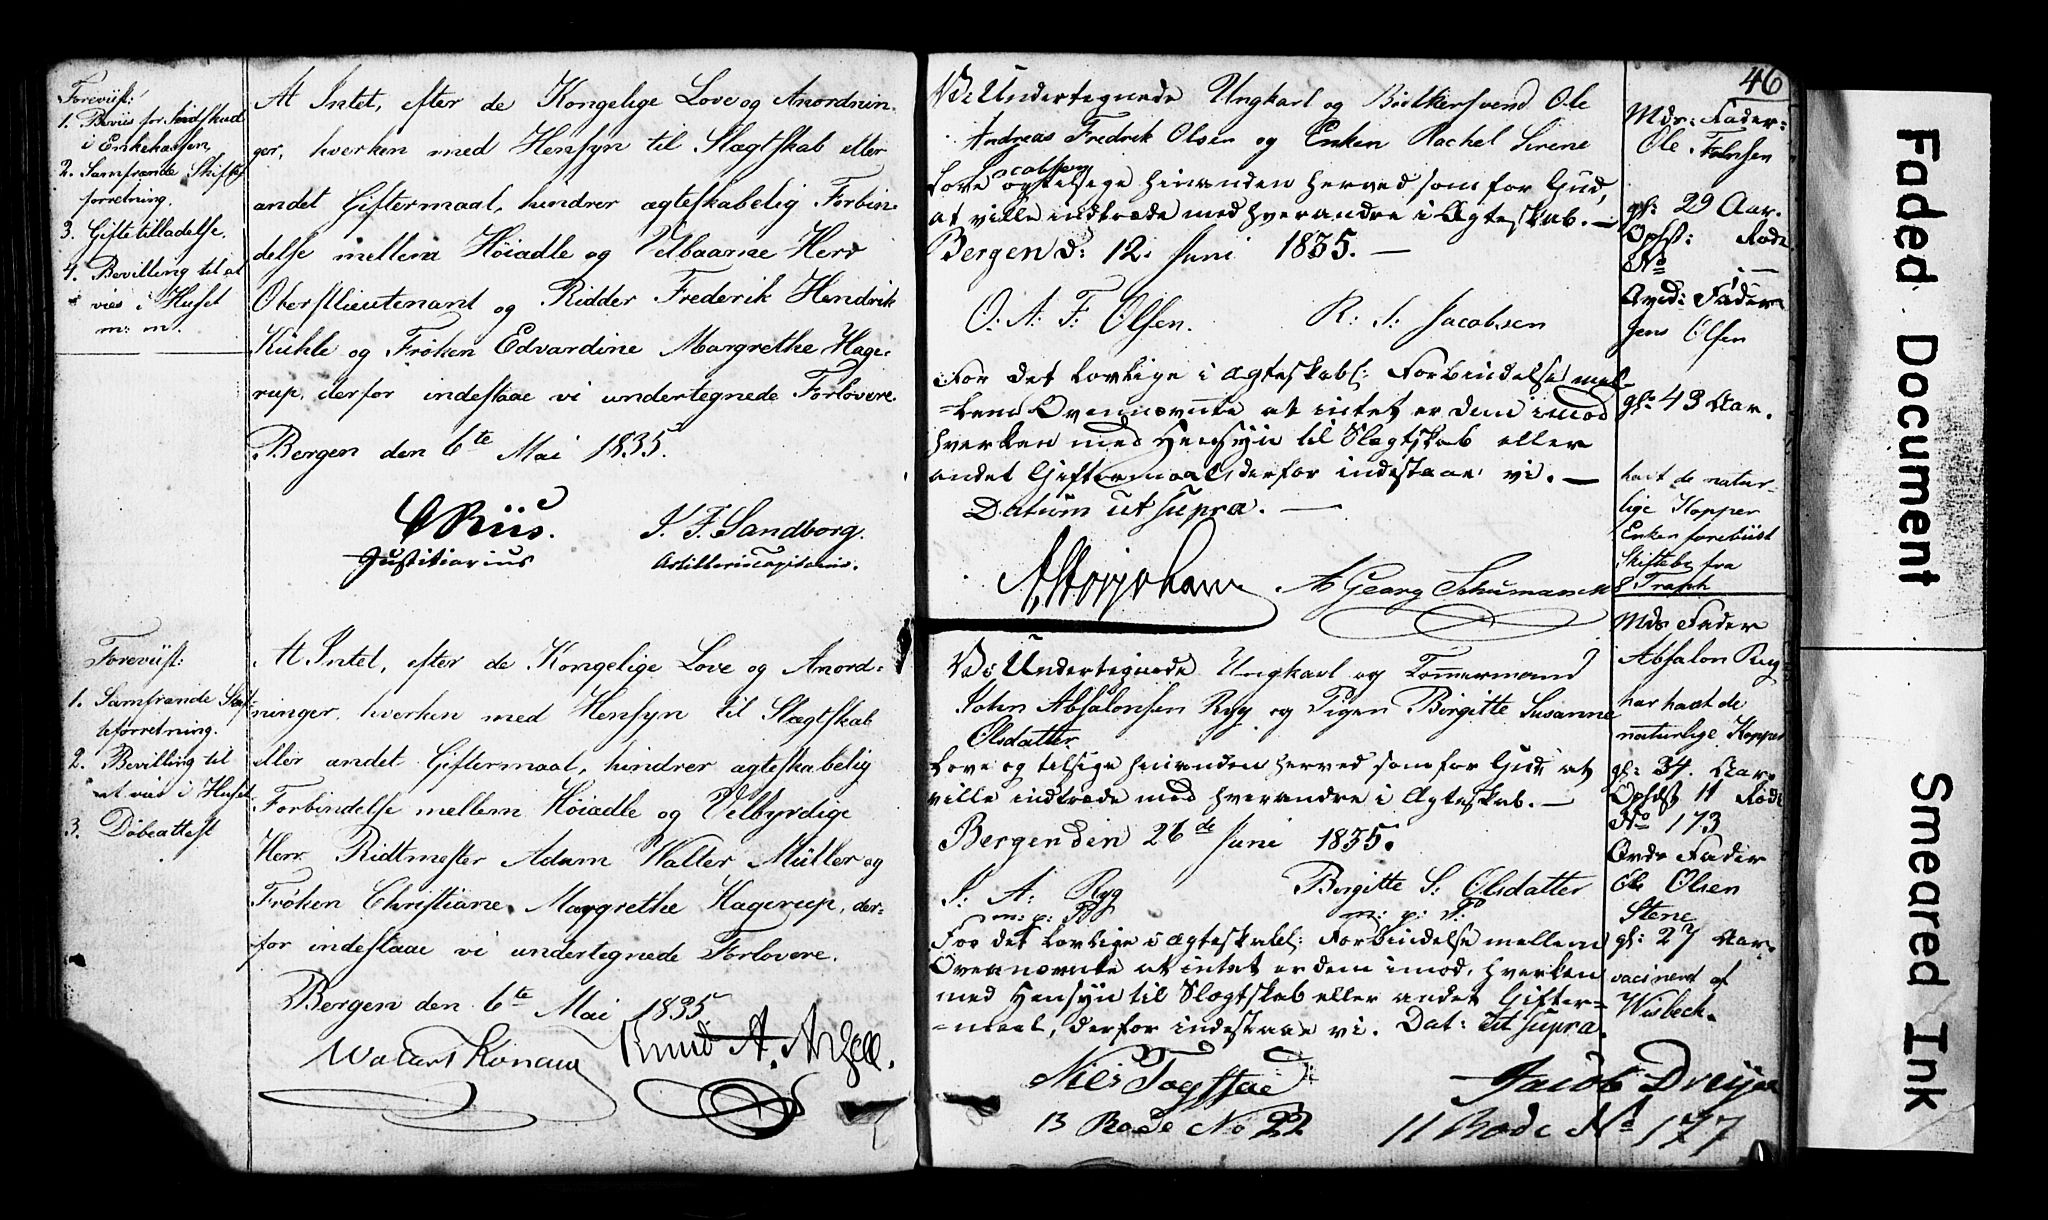 Foreviist:
1. Beviis for Indskud
i Enkekassen,
2. Samfrænde Skifte
forretning.
3. Giftetilladelse.
4. Bevilling til at
vies i Huset
m: m.
At Intet, efter de Kongelige Love og Anordnin-
ger, hverken med Hensyn til Slægtskab eller
andet Giftermaal, hindrer ægteskabelig Forbin-
delse mellem Höiadle og Velbaarne Herr
Oberstlieutenant og Ridder Frederik Hendrik
Kühle og Frøken Edvardine Margrethe Hage-
rup, derfor indestaae vi undertegnede Forlovere.
Bergen den 6te Mai 1835.
CRiis. J. F. Sandborg.
Justitiarius Artillericapitain.
Foreviist:
1. Samfrænde Skif-
teforretning.
2. Bevilling til
at vies i Huset
3. Döbeattest
At Intet, efter de Kongelige Love og Anord-
ninger, hverken med Hensyn til Slægtskab
eller andet Giftermaal, hindrer ægteskabelig
Forbindelse mellem Höiadle og Velbyrdige
Herr Ridtmester Adam Walter Müller og
Frøken Christiane Margrethe Hagerup, der-
for indestaae vi undertegnede Forlovere.
Bergen den 6te Mai 1835.
Wollert Konow Knud A.
46
Vi Undertegnede Ungkarl og Bödkersvend Ole
Andreas Fredrik Olsen og Enken Rachel Sirene
Jacobsen
Love og tilsige hinanden herved som for Gud,
at ville indtræde med hverandre i Ægteskab. —
Bergen d: 12. Juni 1835. —
O: A: F: Olsen. R: S: Jacobsen
For det lovlige i ægteskabl: Forbindelse mel-
=lem Ovennævnte at intet er dem imod
hverken med Hensyn til Slægtskab eller
andet Giftermaal, derfor indestaae vi. —
Datum ut supra. —
Georg Schumann
Mds: Fader:
Ole
gl: 29 Aar.
Ophst: Rode
No
Qvd: Fader
Jens Olsen
gl: 43 Aar.
havt de natur-
lige Kopper
Enken foreviist
Skiftebr fra
Vi Undertegnede Ungkarl og Tömmermand
John Absalonsen Ryg og Pigen Birgitte Susanne
Olsdatter
Love og tilsige hinanden herved som for Gud at
ville indtræde med hverandre i Ægteskab. —
Bergen den 26de Juni 1835.
J: A: Ryg Birgitte S: Olsdatter
m: p: P: m: p: P:
For det lovlige i ægteskabl: Forbindelse mellem
Ovennævnte at intet er dem imod, hverken
med Hensyn til Slægtskab eller andet Gifter-
=maal, derfor indestaae vi. Dat: ut supra.
Niels Jacob Dreyer
13 Rode No 22 11 Rode No 177
Mds Fader
Absalon Ryg
har havt de
naturlige Kopper
gl: 34. Aar
Ophdst 11 Rode
No 173
Qvds Fader
Ole Olsen
Stene
gl: 27 Aar.
vacinerd af
Wisbech.
Faded Document
Smeared Ink